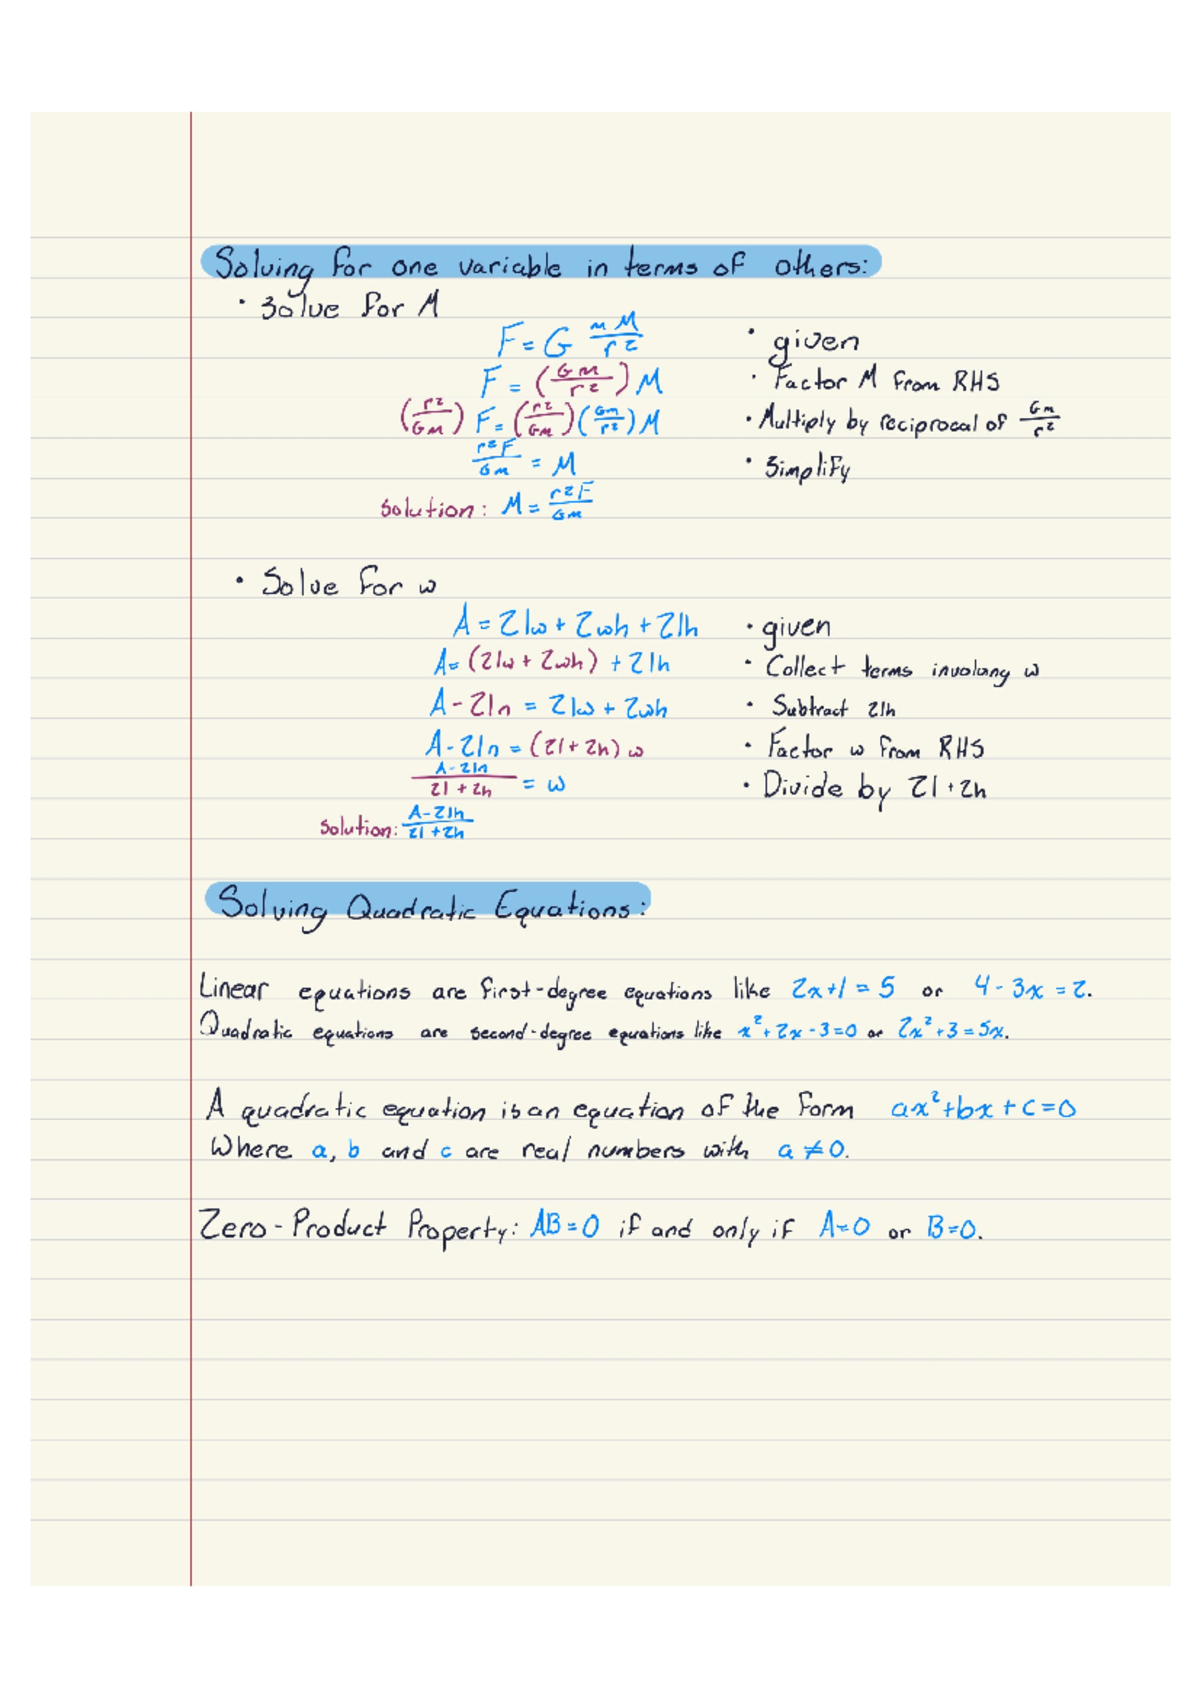 Solving for one variable in terms of others:
• Solve for M
F = G mM/r² • given
F = (Gm/r²) M • Factor M from RHS
(r²/Gm) F = (r²/Gm)(Gm/r²) M • Multiply by reciprocal of Gm/r²
r²F/Gm = M • Simplify
Solution: M = r²F/Gm
• Solve for w
A = 2lw + 2wh + 2lh • given
A = (2lw + 2wh) + 2lh • Collect terms involving w
A - 2lh = 2lw + 2wh • Subtract 2lh
A - 2lh = (2l + 2h) w • Factor w from RHS
A - 2lh/2l + 2h = w • Divide by 2l + 2h
Solution: A - 2lh/2l + 2h
Solving Quadratic Equations:
Linear equations are first-degree equations like 2x+1 = 5 or 4 - 3x = 2.
Quadratic equations are second-degree equations like x² + 2x - 3 = 0 or 2x² + 3 = 5x.
A quadratic equation is an equation of the form ax² + bx + c = 0
Where a, b and c are real numbers with a ≠ 0.
Zero-Product Property: AB = 0 if and only if A = 0 or B = 0.